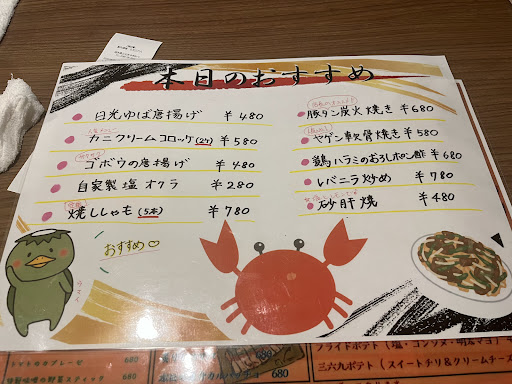 本日のおすすめ
日光ゆば唐揚げ ¥480
カニクリームコロッケ(2ケ) ¥580
ゴボウの唐揚げ ¥480
自家製塩オクラ ¥280
焼ししゃも(5本) ¥780
おすすめ♡
豚タン炭火焼き ¥680
ヤゲン軟骨焼き ¥580
鶏ハラミのおろしポン酢 ¥680
レバニラ炒め ¥780
砂肝焼 ¥480
680
680
フライドポテト(塩・コンソメ・明太マヨ)
三六九ポテト(スイートチリ&クリームチーズ